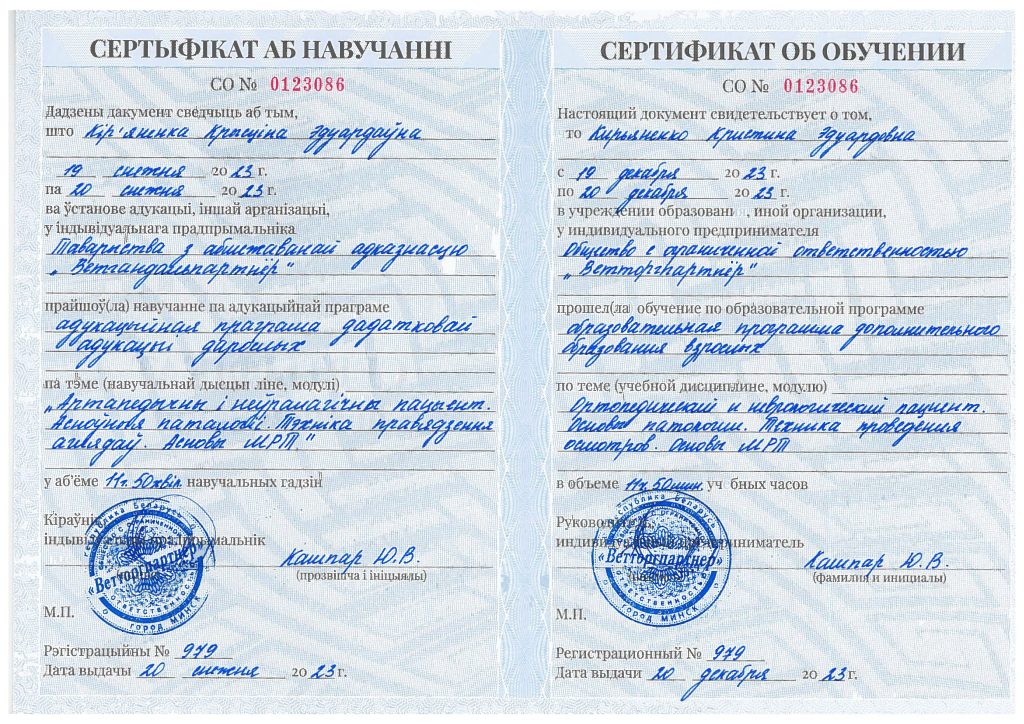 СЕРТЫФІКАТ АБ НАВУЧАННІ
СО № 0123086
Дадзены дакумент сведчыць аб тым,
што Кір'яненка Крысціна Эдуардаўна
19 снежня 2023 г.
па 20 снежня 2023 г.
ва ўстанове адукацыі, іншай арганізацыі,
у індывідуальнага прадпрымальніка
Таварыства з абмежаванай адказнасцю
„Ветгандальпартнёр"
прайшоў(ла) навучанне па адукацыйнай праграме
адукацыйная праграма дадатковай
адукацыі дарослых
па тэме (навучальнай дысцыпліне, модулі)
„Артапедычны і неўралагічны пацыент.
Асноўныя паталогіі. Тэхніка правядзення
аглядаў. Асновы МРТ"
у аб'ёме 11г. 50хвіл. навучальных гадзін
Кіраўнік,
індывідуальны прадпрымальнік
Кашпар Ю.В.
(прозвішча і ініцыялы)
«Ветторгпартнер»
город Минск
М.П.
Рэгістрацыйны № 979
Дата выдачы 20 снежня 2023 г.
СЕРТИФИКАТ ОБ ОБУЧЕНИИ
СО № 0123086
Настоящий документ свидетельствует о том,
то Кирьяненко Кристина Эдуардовна
с 19 декабря 2023 г.
по 20 декабря 2023 г.
в учреждении образовани , иной организации,
у индивидуального предпринимателя
Общество с ограниченной ответственностью
„Ветторгпартнёр"
прошел(ла обучение по образовательной программе
образовательная программа дополнительного
образования взрослых
по теме (учебной дисциплине, модулю)
Ортопедический и неврологический пациент.
Основы патологии. Техника проведения
осмотров. Основы МРТ
в объеме 11ч. 50мин. уч бных часов
Руководитель,
индивидуальный предприниматель
Кашпар Ю.В.
(фамилия и инициалы)
Республика Беларусь
«Ветторгпартнер»
город Минск
М.П.
Регистрационный № 979
Дата выдачи 20 декабря 2023 г.